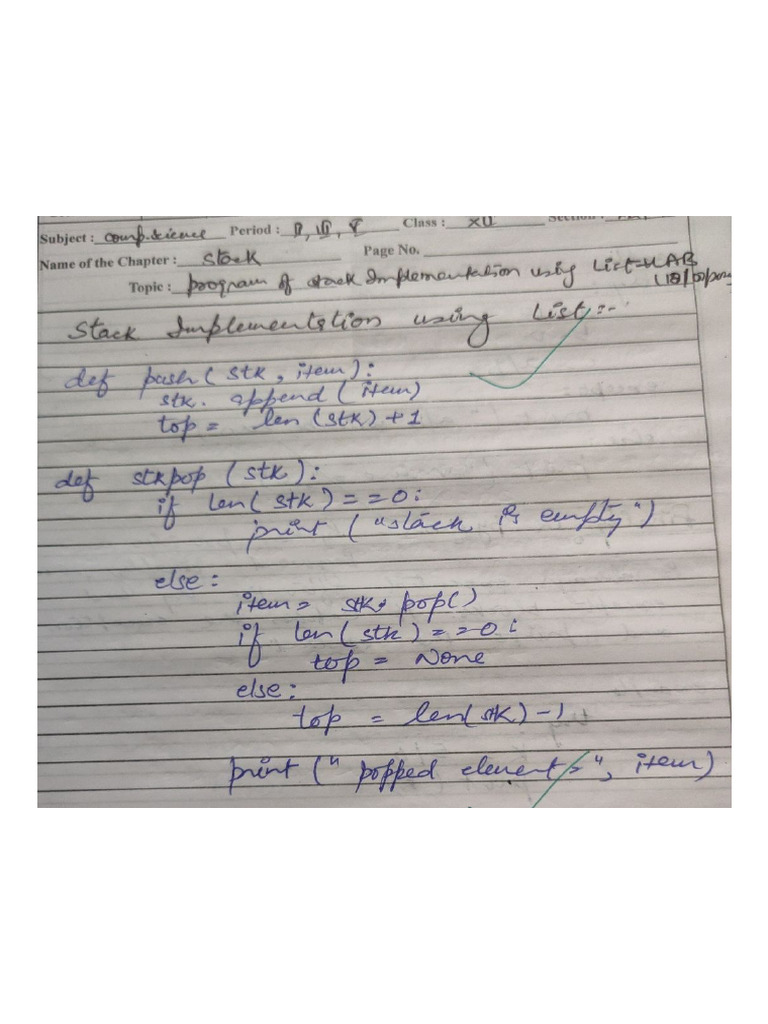 Subject : comp.science Period : II, III, V Class : XII Section :
Name of the Chapter : Stack Page No.
Topic : program of stack Implementation using List-LAB
Stack Implementation using List:-
def push( stk, item):
stk. append( item)
top = len (stk) + 1
def stkpop (stk):
if len( stk) = = 0:
print ( "stack is empty")
else:
item = stk. pop()
if len( stk) = = 0 :
top = None
else:
top = len(stk) - 1
print (" popped element = ", item)